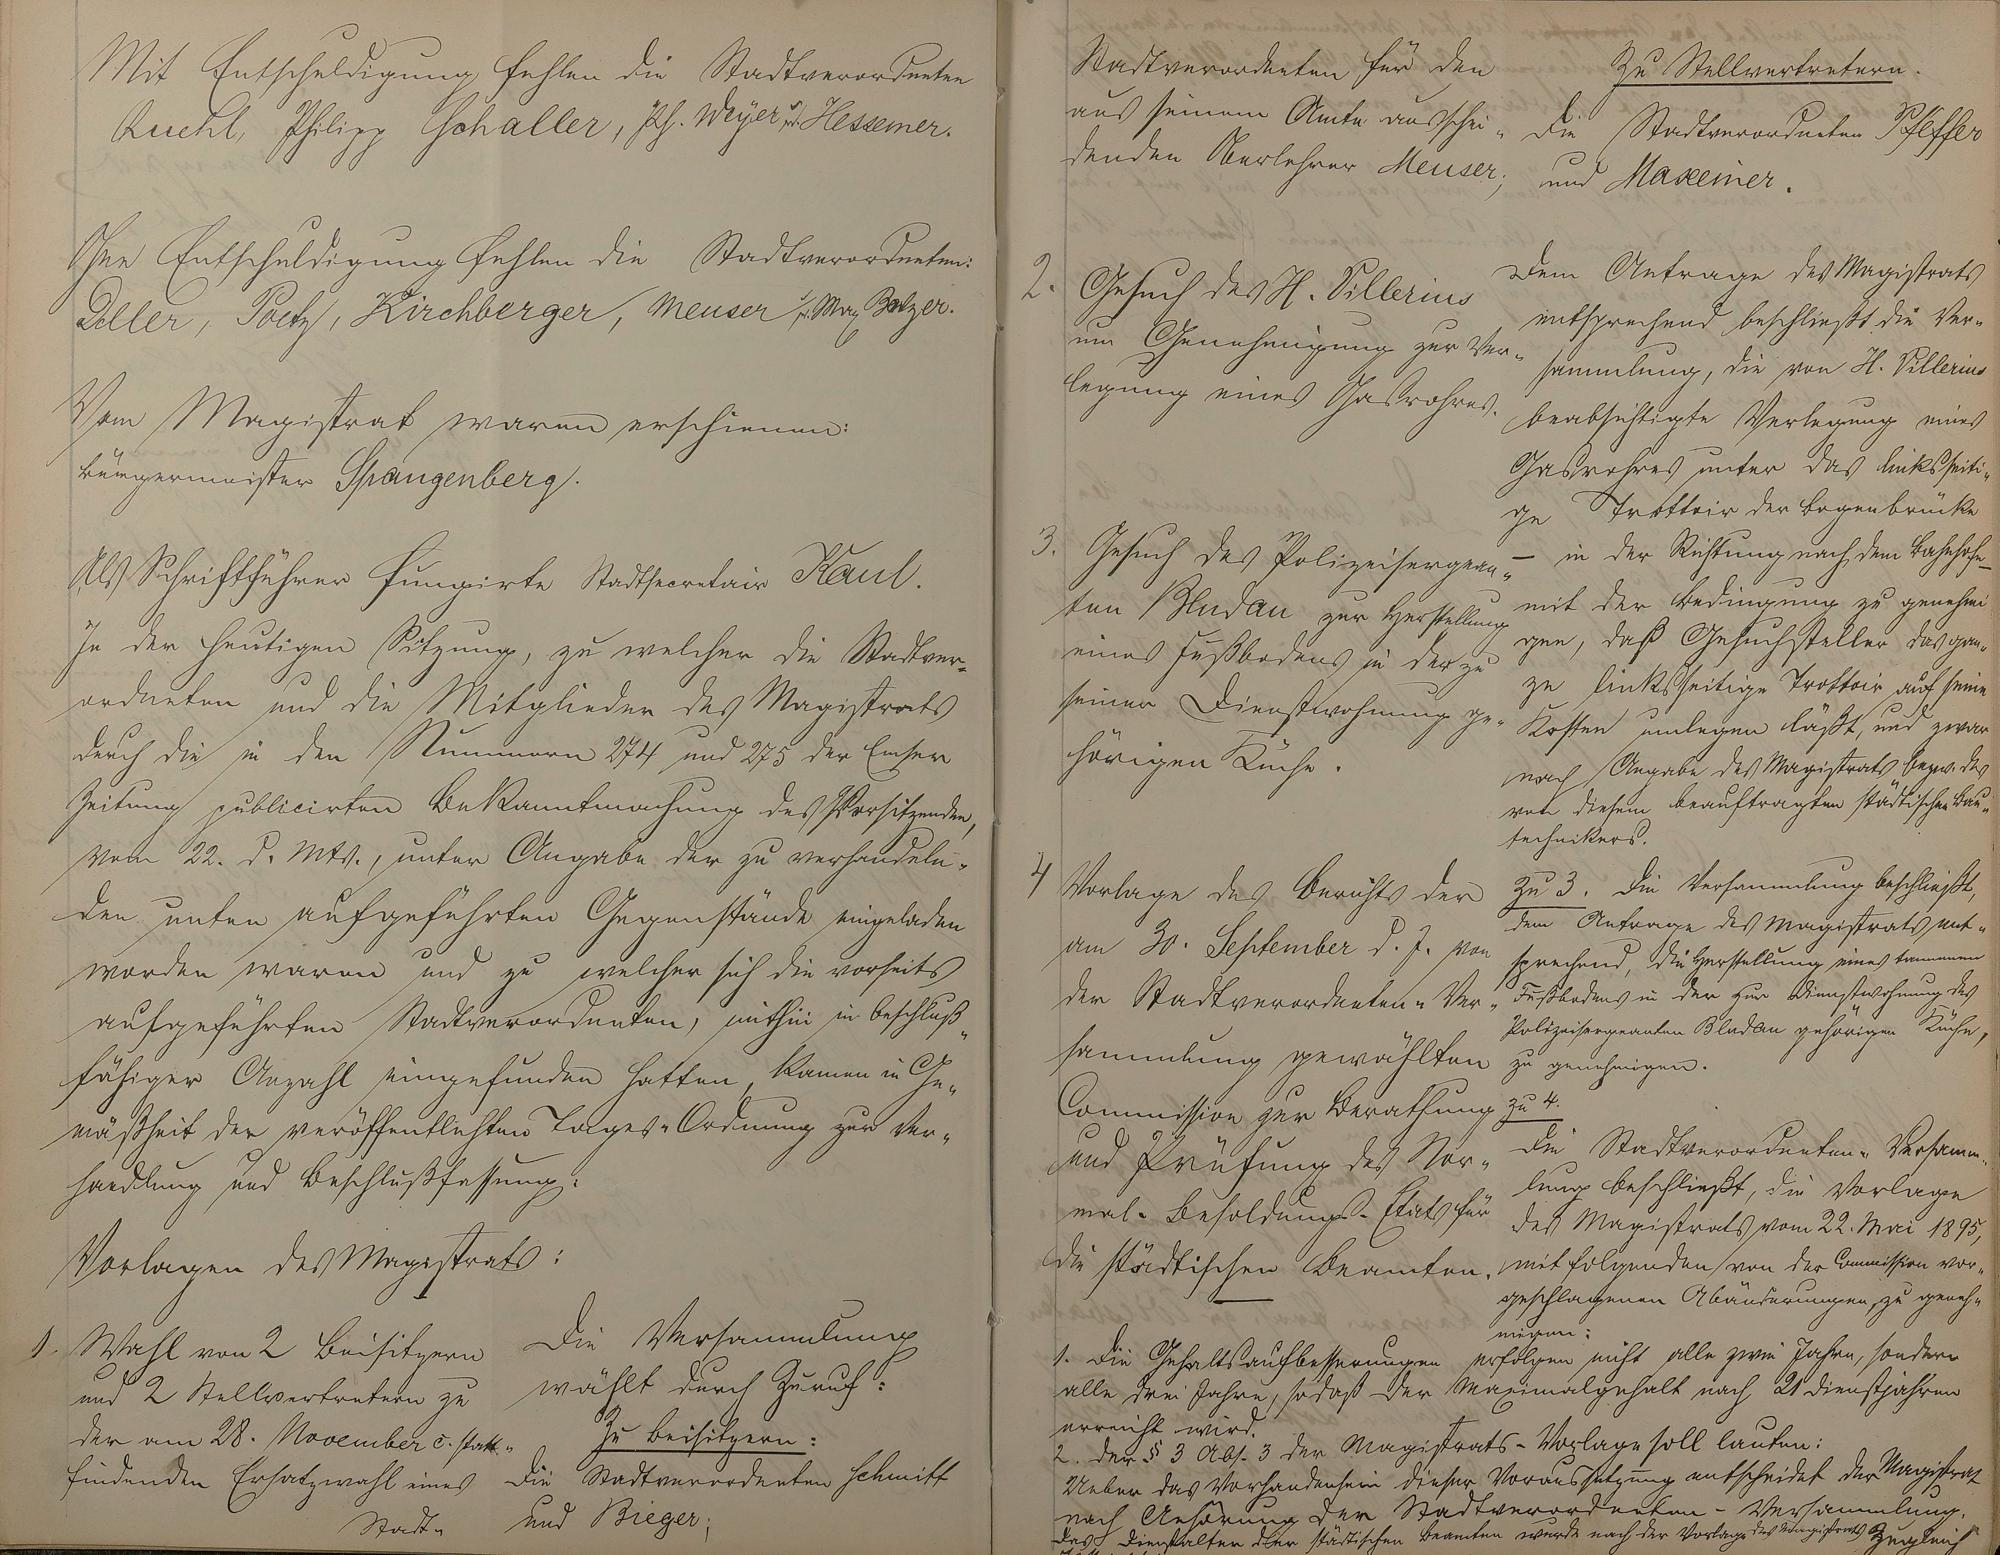 Mit Entschuldigung fehlen die Stadtverordneten
Ruehl, Philipp Schaller, Ph. Weyer u. Hessemer.
Ohne Entschuldigung fehlen die Stadtverordneten:
Deller, Poetz, Kirchberger, Meuser u. Max Balzer.
Vom Magistrat waren erschienen:
Bürgermeister Spangenberg.
Als Schriftführer fungirte Stadtsecretair Kaul.
In der heutigen Sitzung, zu welcher die Stadtver-
ordneten und die Mitglieder des Magistrats
durch die in den Nummern 274 und 275 der Emser
Zeitung publicirten Bekanntmachung des Vorsitzenden,
vom 22. d. Mts., unter Angabe der zu verhandeln-
den unten aufgeführten Gegenstände eingeladen
worden waren und zu welcher sich die vorseits
aufgeführten Stadtverordneten, mithin in beschluß-
fähiger Anzahl eingefunden hatten, kamen in Ge-
mäßheit der veröffentlichten Tages-Ordnung zur Ver-
handlung und Beschlußfassung:
Vorlagen des Magistrats:
1. Wahl von 2 Beisitzern
und 2 Stellvertretern zu
der am 28. November c. statt-
findenden Ersatzwahl eines
Stadt-
Die Versammlung
wählt durch Zuruf:
Zu Beisitzern:
Die Stadtverordneten Schmitt
und Bieger;
Stadtverordneten für den
aus seinem Amte ausschei-
denden Oberlehrer Meuser;
Zu Stellvertretern.
Die Stadtverordneten Pfeffer
und Maxeiner.
2. Gesuch des H. Villerius
um Genehmigung zur Ver-
legung eines Gasrohres.
Dem Antrage des Magistrats
entsprechend beschließt die Ver-
sammlung, die von H. Villerius
beabsichtigte Verlegung eines
Gasrohres unter das linksseiti-
ge Trottoir der Bogenbrücke
– in der Richtung nach dem Bahnhofe –
mit der Bedingung zu genehmi
gen, daß Gesuchsteller das gan-
ze linksseitige Trottoir auf seine
Kosten umlegen läßt, und zwar
nach Angabe des Magistrats bezw. des
von diesem beauftragten städtischen Bau-
technikers.
3. Gesuch des Polizeisergean-
ten Bludau zur Herstellung
eines Fußbodens in der zu
seiner Dienstwohnung ge-
hörigen Küche.
Zu 3. Die Versammlung beschließt,
dem Antrage des Magistrats ent-
sprechend, die Herstellung eines tannenen
Fußbodens in der zur Dienstwohnung des
Polizeisergeanten Bludau gehörigen Küche,
zu genehmigen.
4 Vorlage des Berichts der
am 30. September d. J. von
der Stadtverordneten-Ver-
sammlung gewählten
Commission zur Berathung
und Prüfung des Nor-
mal-Besoldungs-Etats für
die städtischen Beamten.
Zu 4.
Die Stadtverordneten-Versamm-
lung beschließt, die Vorlage
des Magistrats vom 22. Mai 1895,
mit folgenden von der Commission vor-
geschlagenen Abänderungen, zu geneh-
migen:
1. Die Gehaltsaufbesserungen erfolgen nicht alle zwei Jahre, sondern
alle drei Jahre, sodaß der Maximalgehalt nach 21 Dienstjahren
erreicht wird.
2. Der § 3 Abs. 3 der Magistrats-Vorlage soll lauten:
Ueber das Vorhandensein dieser Voraussetzung entscheidet der Magistrat
nach Anhörung der Stadtverordneten-Versammlung.
Das Dienstalter der städtischen Beamten wurde nach der Vorlage des Magistrats zugleich